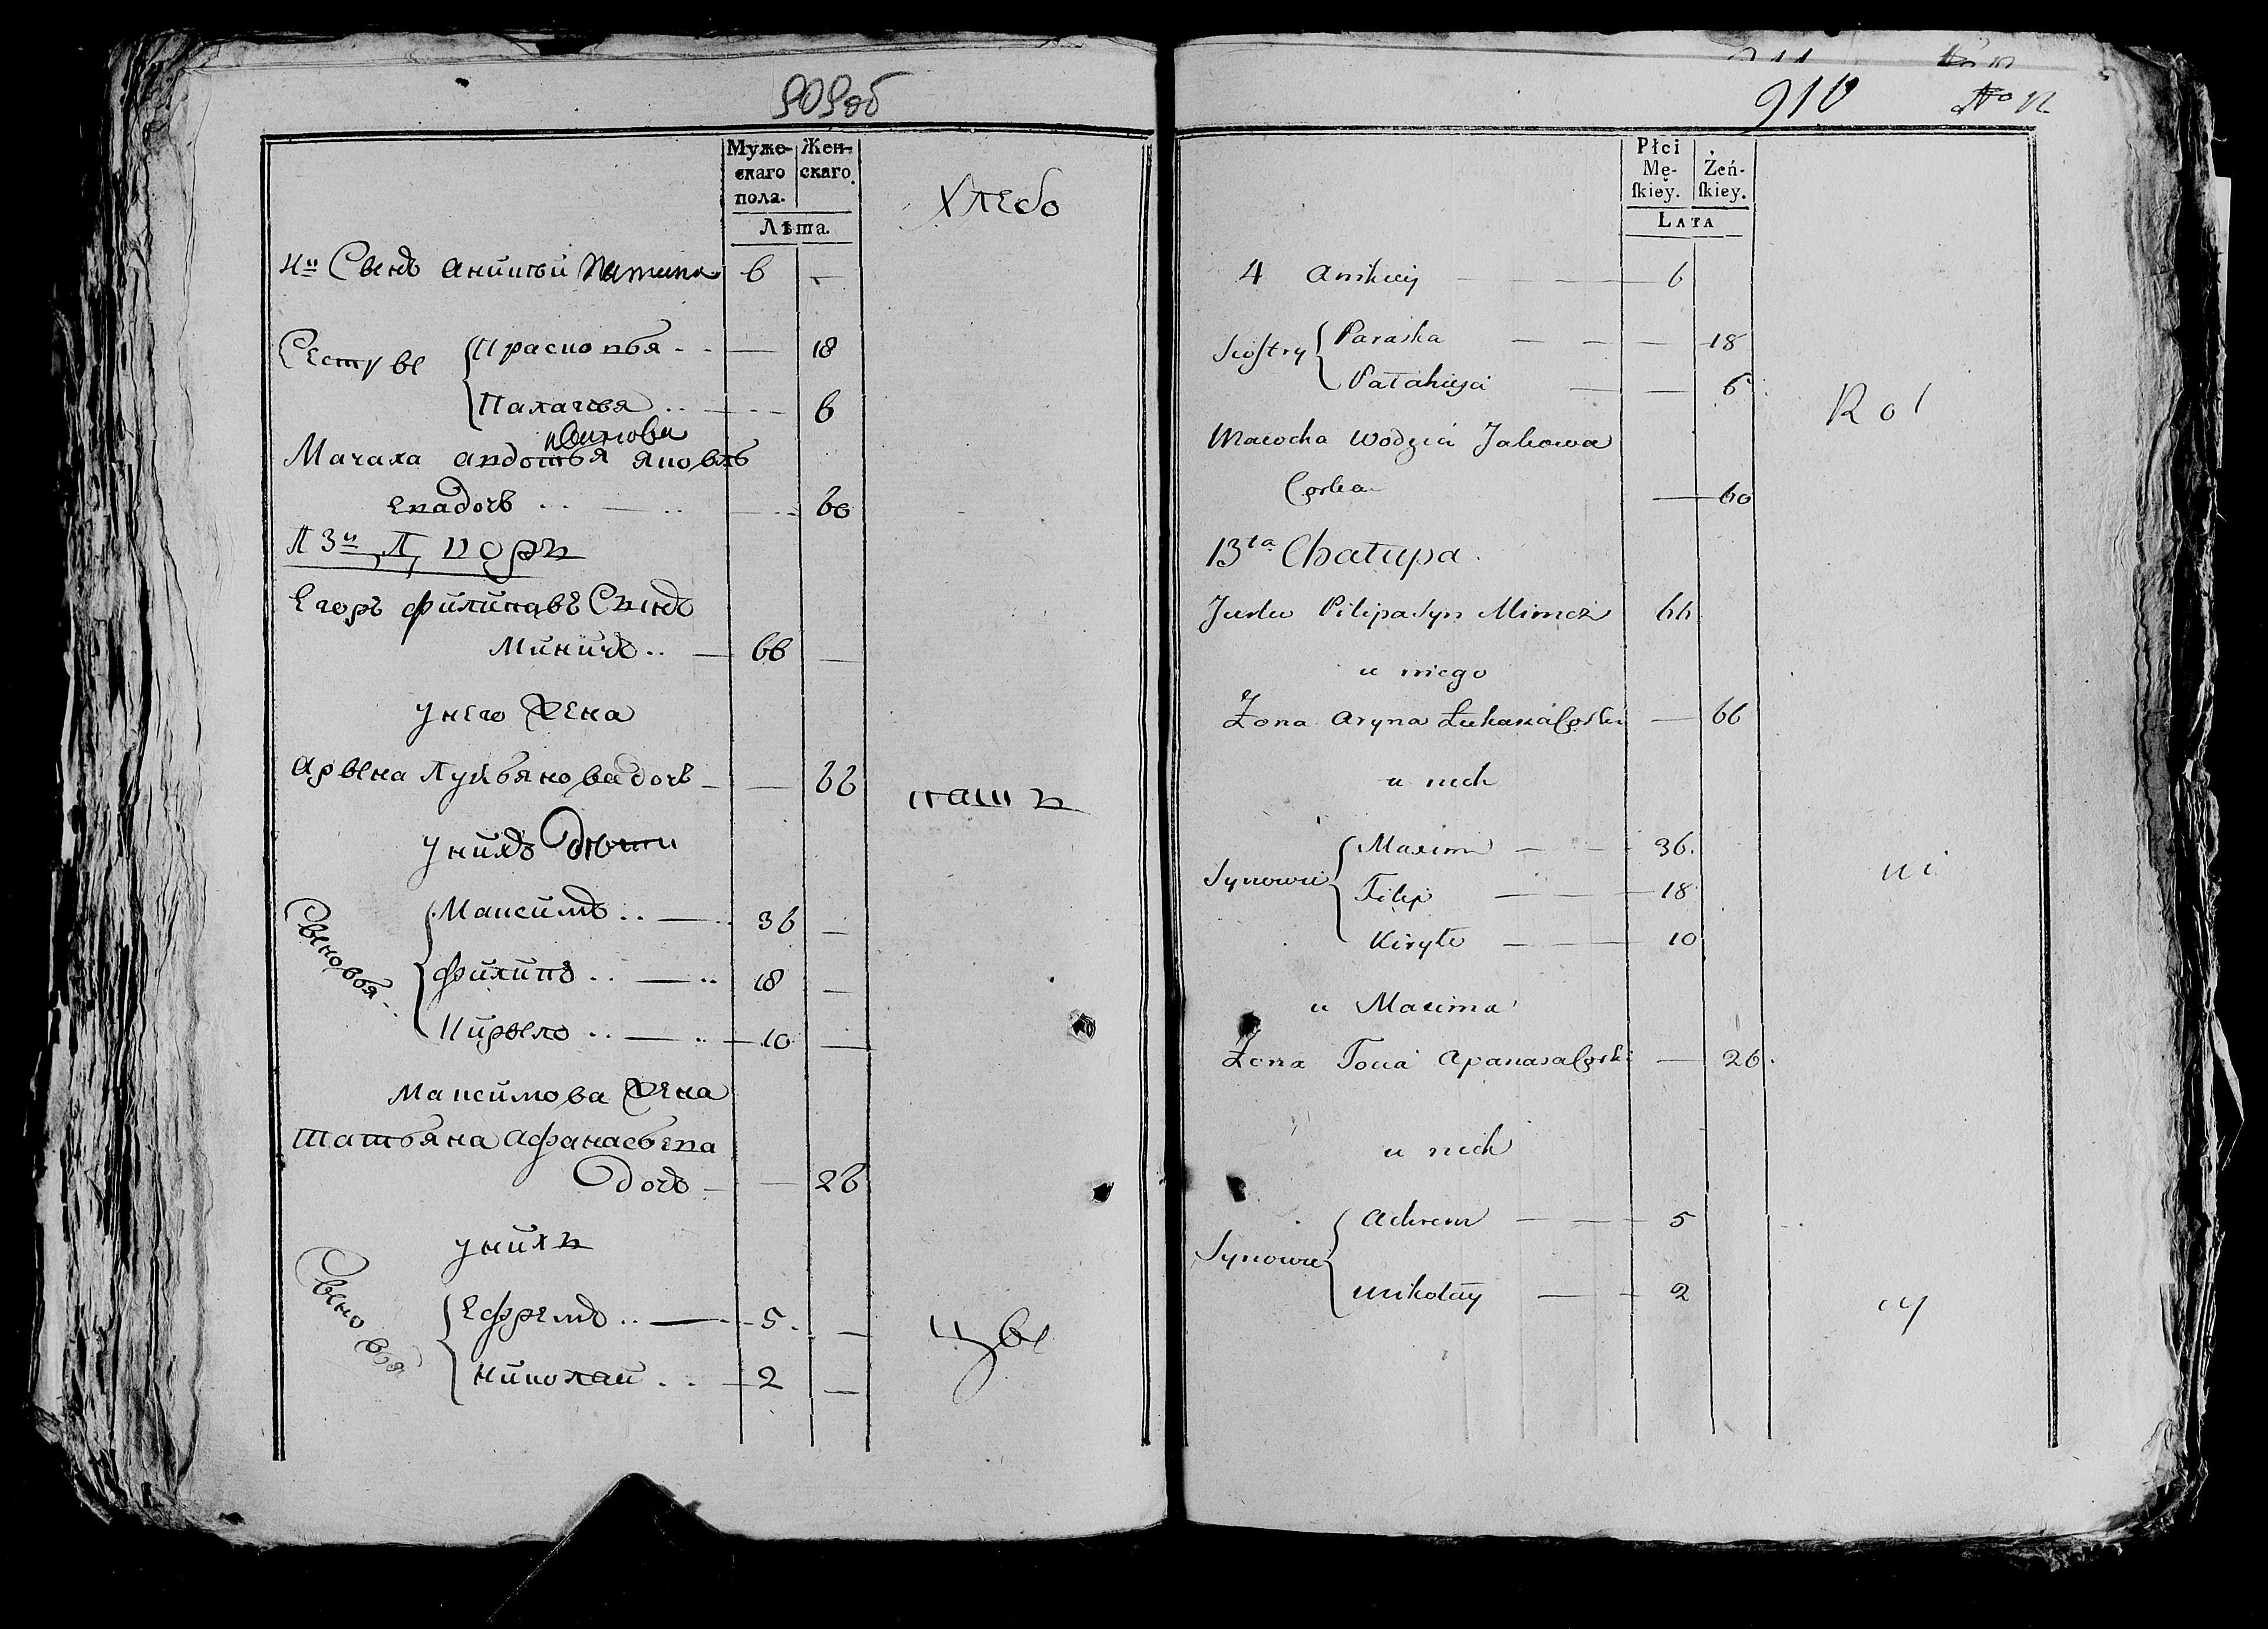 909об
Муже-
скаго
пола.
Жен-
скаго.
Лѣта.
Хлебо
4й Сынъ аникѣй 6 —
Сестры
Прасковья 18
Палагея 6
Мачаха авдотья яковле
ева дочь 60
13й Д, воръ
Егоръ филиповъ Сынъ
Миничъ 66 —
Унего Жена
Арына Лукьянова дочь 66
пашъ
Унихъ Дѣти
Сыновья
Максимъ 36 —
филипъ 18 —
Кирыло 10 —
Максимова Жена
татьяна афанасьева
Дочь 26
унихъ
Сыновья
Ефремъ 5 —
николай 2 —
цы
910 No 12
Płci
Mę-
ſkiey.
Żeń-
ſkiey.
LATA
4 Anikiey 6
Siostry
Paraska 18
Pałahieja 6
Rol
Macocha Wodzia Jakowa
Corka 60
13ta Chałupa.
Jurko Pilipa Syn Minicz 66
u niego
Żona Aryna Łukasza Corka 66
u nich
Synowie
Maxim 36.
Filip 18
Kiryło 10
ni
u Maxima
Żona Tacia Apanasa Corka 26.
u nich
Synowie
Achrem 5
Mikołay 2
cy